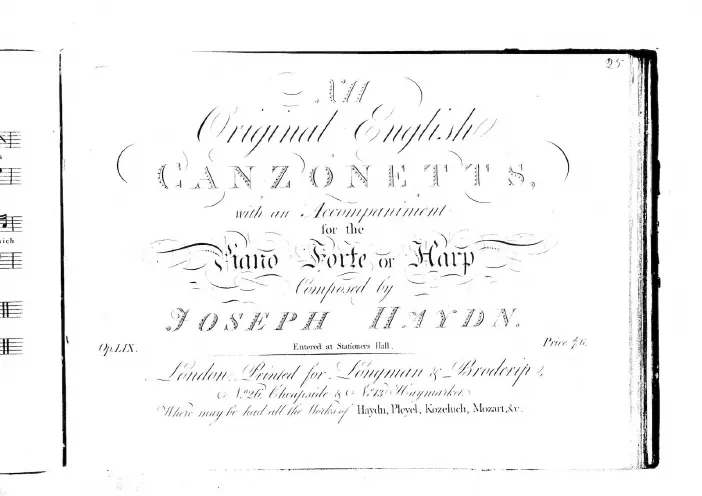 25
XII
Original English
CANZONETTS,
with an Accompaniment
for the
Piano Forte or Harp
Composed by
JOSEPH HAYDN.
Op.LIX.
Entered at Stationers Hall.
Price 7/6.
London, Printed for Longman & Broderip,
No. 26, Cheapside & No. 13 Haymarket
Where may be had all the Works of Haydn, Pleyel, Kozeluch, Mozart, &c.